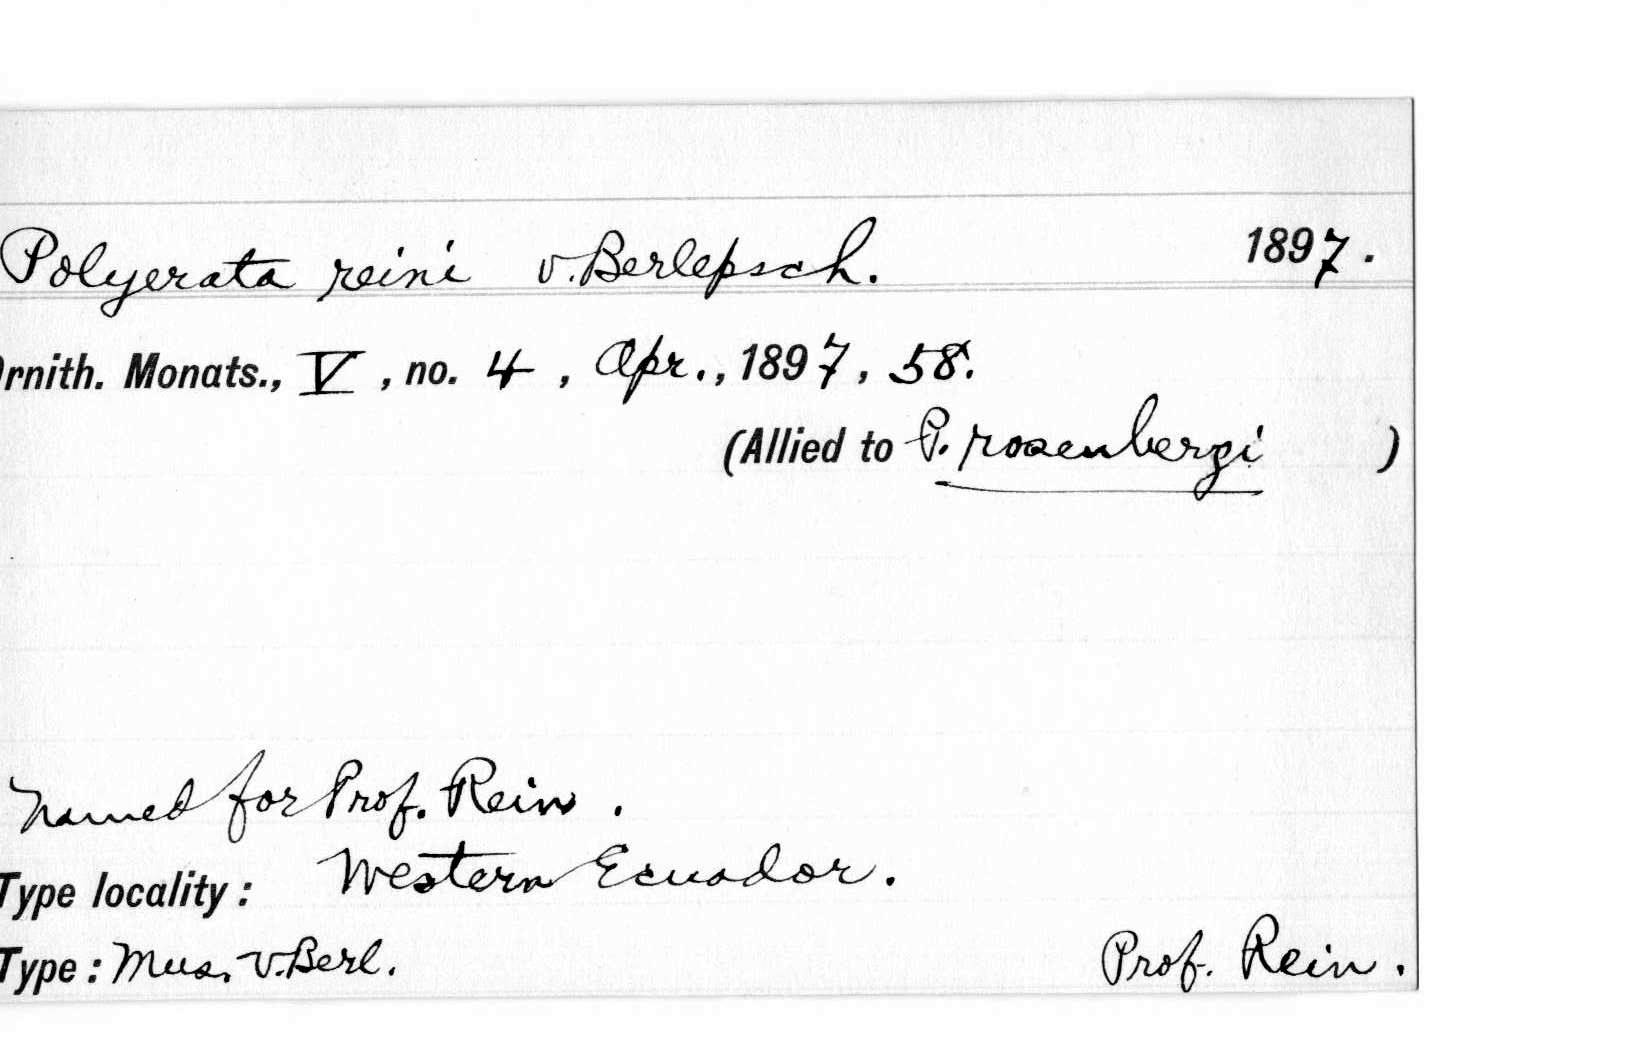 Polyerata reini v. Berlepsch. 1897.
Ornith. Monats., V, no. 4, Apr., 1897, 58.
(Allied to P. rosenbergi )
Named for Prof. Rein.
Type locality: Western Ecuador.
Type: Mus. v. Berl. Prof. Rein.